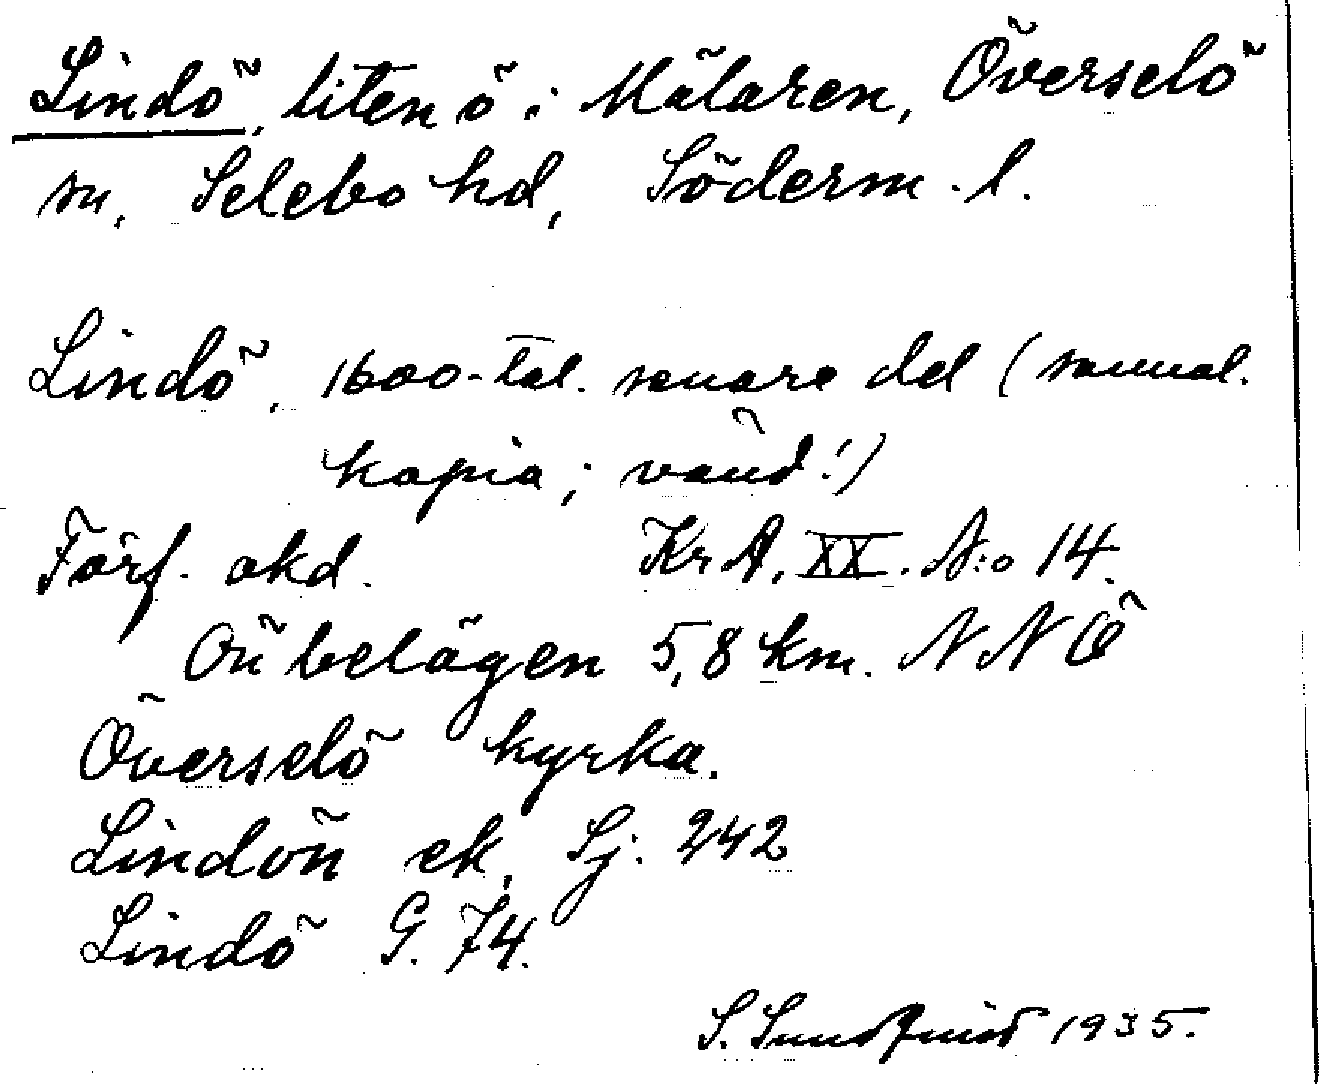 Lindö, liten ö i Mälaren, Överselö
sn, Selebo hd, Söderm. l.
Lindö, 1600-tal. senare del (samual.
kopia; vänd!)
Förf. okd. Kr A. XX. N:o 14.
Ön belägen 5,8 km. NNÖ
Överselö kyrka.
Lindön ek. Sj. 242
Lindö G. 74.
S. Sundquist 1935.